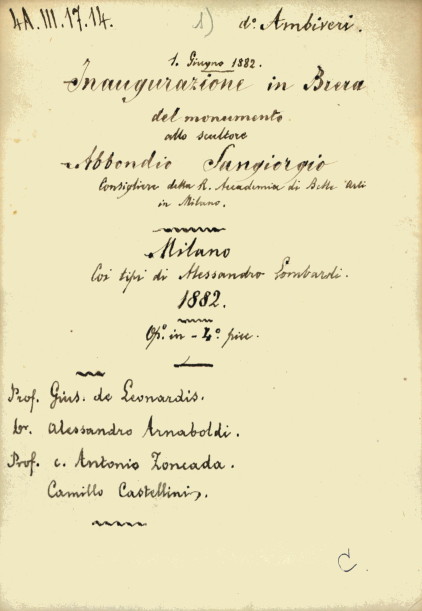 4A.III.17.14. 1) d.º Ambiveri.
1. Giugno 1882.
Inaugurazione in Brera
del monumento
allo scultore
Abbondio Sangiorgio
Consigliere della R. Accademia di Belle Arti
in Milano.
Milano
Coi tipi di Alessandro Lombardi.
1882.
Op.º in - 4.º picc.
Prof. Gius. de Leonardis.
Alessandro Arnaboldi.
Prof. c. Antonio Zoncada.
Camillo Castellini,
C